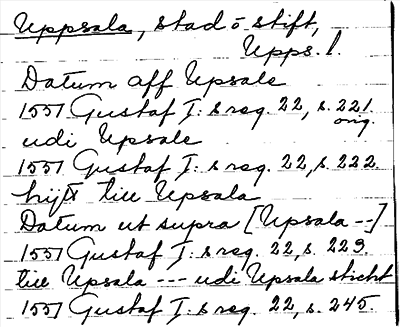 Uppsala, stad o stift,
Upps. l.
Datum aff Upsale
1551 Gustaf I:s reg. 22, s. 221.
orig.
udi Upsale
1551 Gustaf I:s reg. 22, s. 222.
hijtt till Upsala
Datum ut supra [Upsala --]
1551 Gustaf I:s reg. 22, s. 229.
till Upsala --- udi Upsala sticht
1551 Gustaf I:s reg. 22, s. 245.